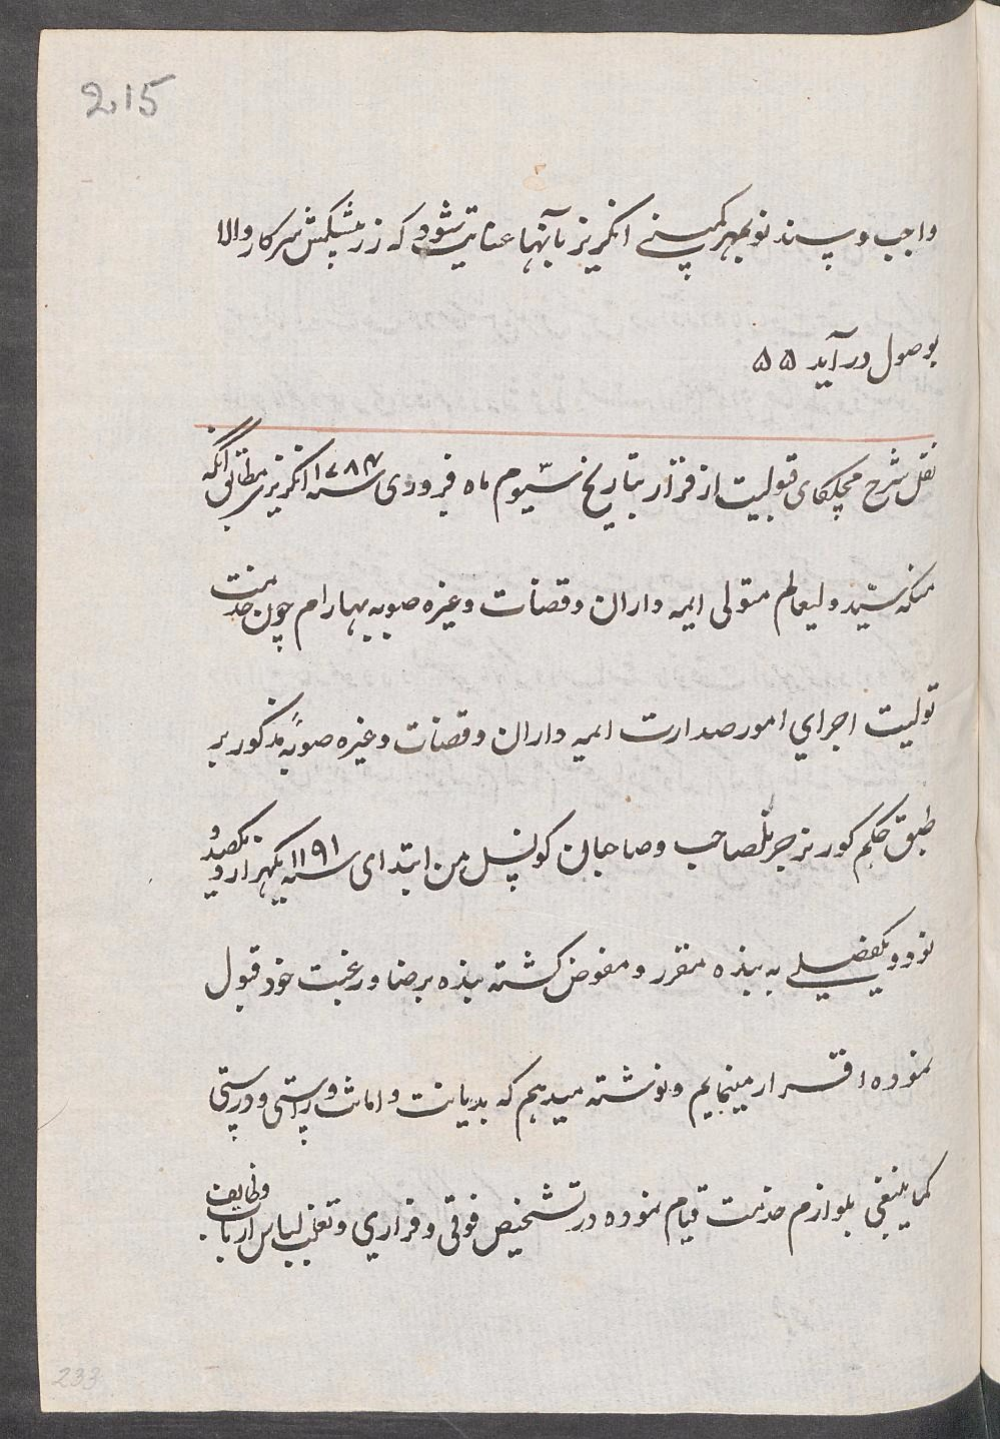 215
واجب و سند نو بمهر کمپنے انگریز بآنها عنایت شود که زر پیشکش سرکار والا
بوصول در آید ۵۵
نقل شرح مچلکای قبولیت از قرار بتاریخ سیّوم ماه فروردی سنه ۱۷۸۴ انگریزی مطابق آنکه
منکه سیّد ولیعالم متولی ایمه داران و قضات وغیره صوبه بهار ام چون خدمت
تولیت اجراي امور صدارت ایمه داران و قضات وغیره صوبهٔ مذکور بر
طبق حکم گورنر جرنل صاحب و صاحبان کونسل من ابتدای سنه ۱۱۹۱ یکهزار و یکصد و
نود و یکفصلے به بنده مقرر و مفوض گشته بنده برضا و رغبت خود قبول
نموده اقرار مینمایم و نوشته میدهم که بدیانت و امانت و راستی و درستی
کما ینبغی بلوازم خدمت قیام نموده در تشخیص فوتی و فراری و تغلب لباس ارباب وظایف
233